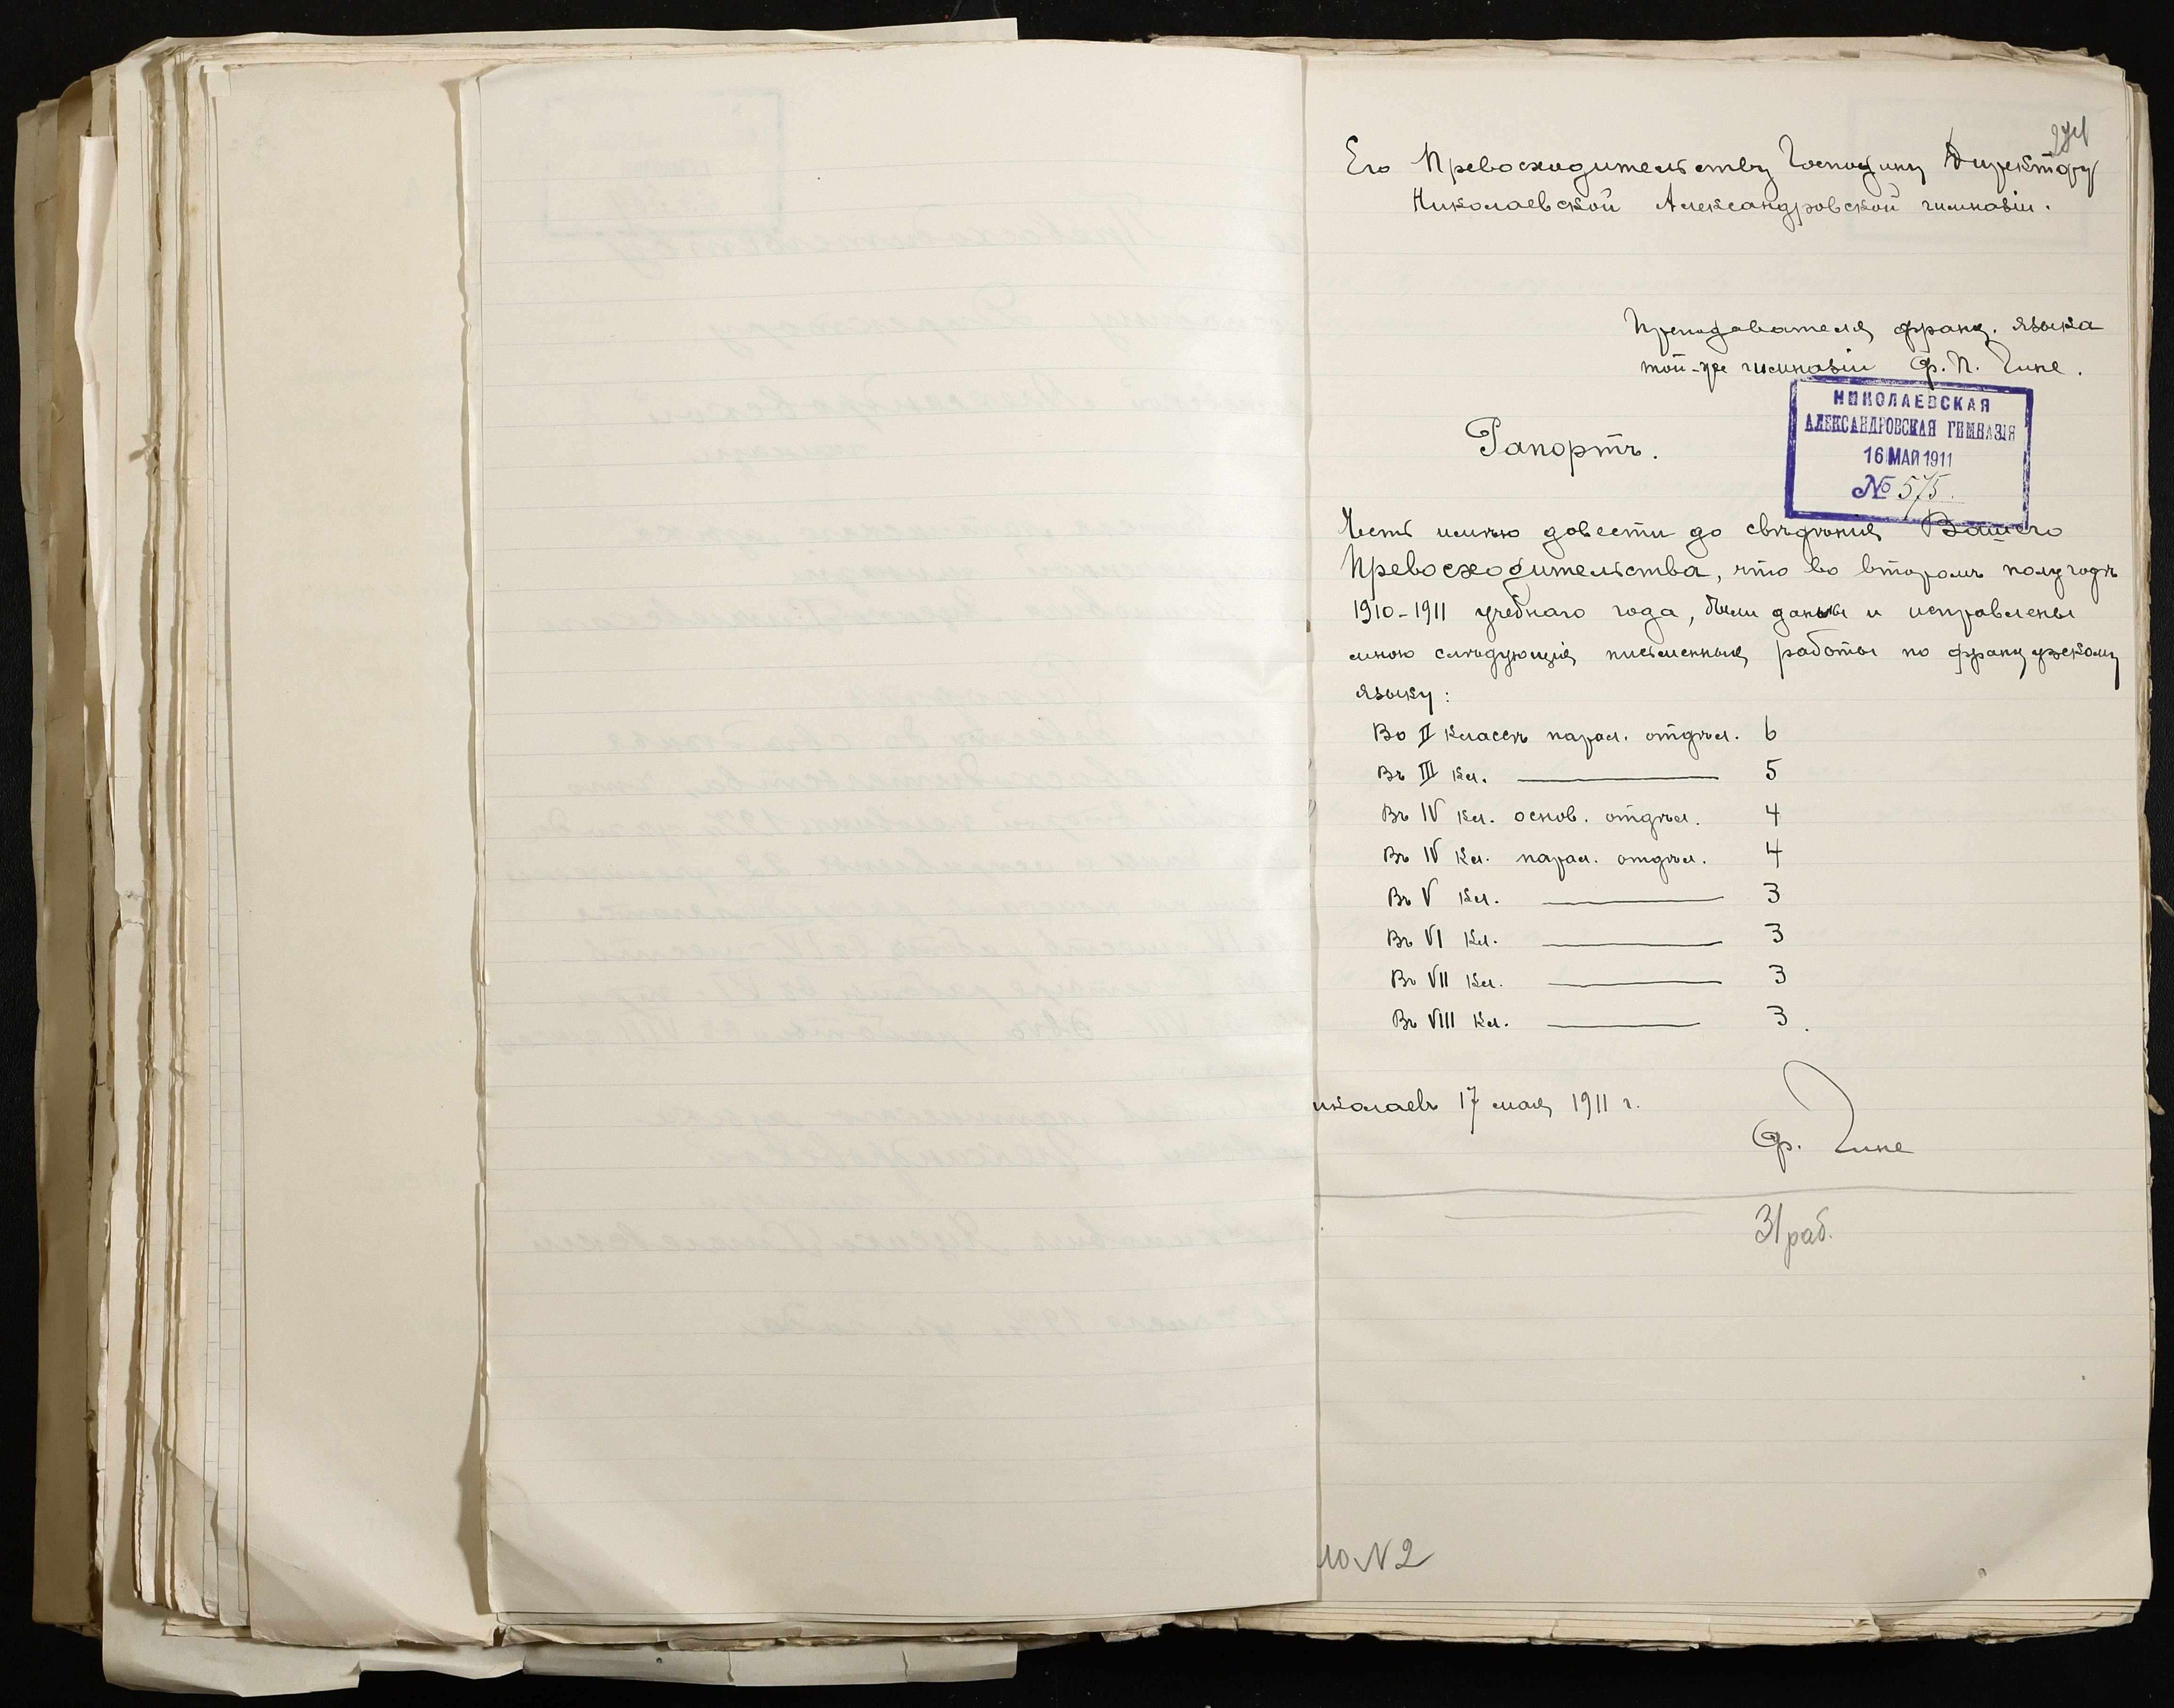 274
Его Превосходительству Господину Директору
Николаевской Александровской гимназіи.
Преподавателя франц. языка
той-же гимназіи Ф. П. Гине.
НИКОЛАЕВСКАЯ
АЛЕКСАНДРОВСКАЯ ГИМНАЗІЯ
16 МАЯ 1911
№ 575.
Рапортъ.
Честь имѣю довести до свѣдѣнія Вашего
Превосходительства, что во второмъ полугодѣ
1910-1911 учебнаго года, были даны и исправлены
мною слѣдующія письменныя работы по французскому
языку:
Во II классѣ парал. отдѣл. 6
Въ III кл. ——— 5
Въ IV кл. основ. отдѣл. 4
Въ IV кл. парал. отдѣл. 4
Въ V кл. ——— 3
Въ VI кл. ——— 3
Въ VII кл. ——— 3
Въ VIII кл. ——— 3.
иколаевъ 17 мая 1911 г.
Ф. Гине
31 раб.
ло N 2